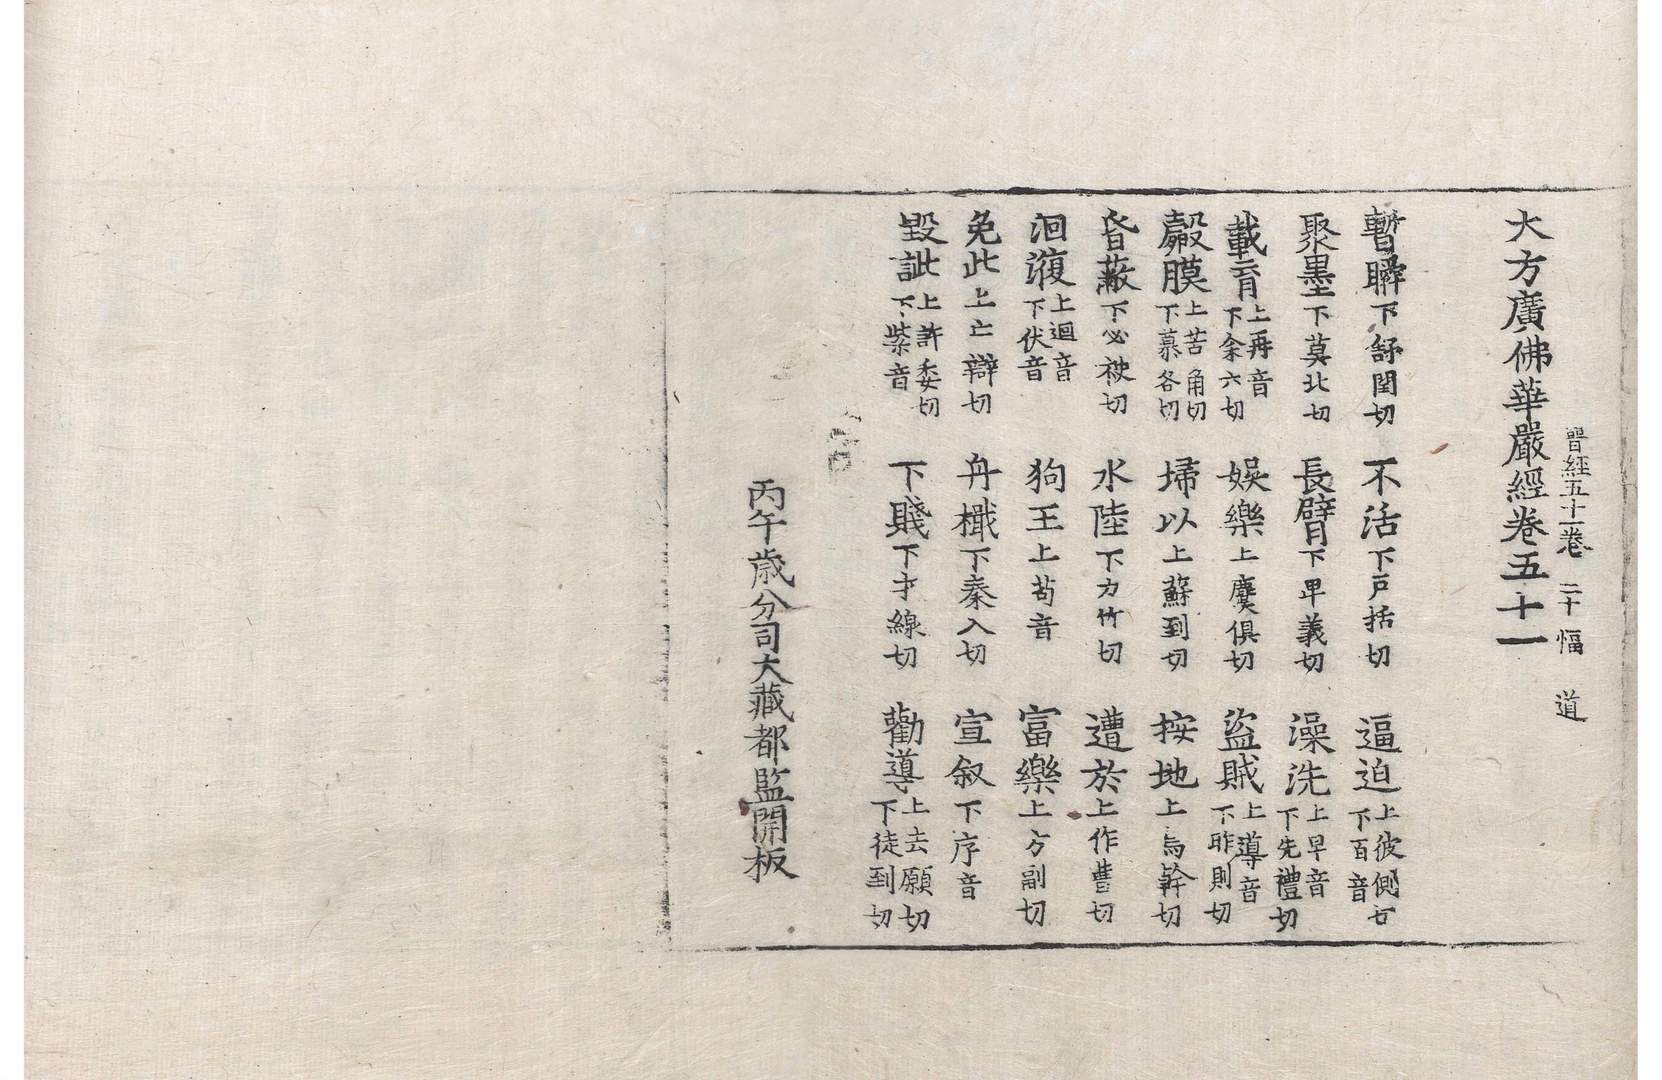 晉經五十一卷 二十幅 道
大方廣佛華嚴經卷五十一
暫瞬下舒閏切 不活下戶括切 逼迫上彼側切下百音
聚墨下莫北切 長臂下卑義切 澡洗上早音下先禮切
載育上再音下余六切 娛樂上麌俱切 盜賊上導音下昨則切
㲉膜上苦角切下慕各切 埽以上蘇到切 按地上烏幹切
昏蔽下必袂切 水陸下力竹切 遭於上作曹切
洄澓上迴音下伏音 狗王上苟音 富樂上方副切
免此上亡辯切 舟檝下秦入切 宣叙下序音
毀訿上許委切下紫音 下賤下才線切 勸導上去願切下徒到切
丙午歲分司大藏都監開板